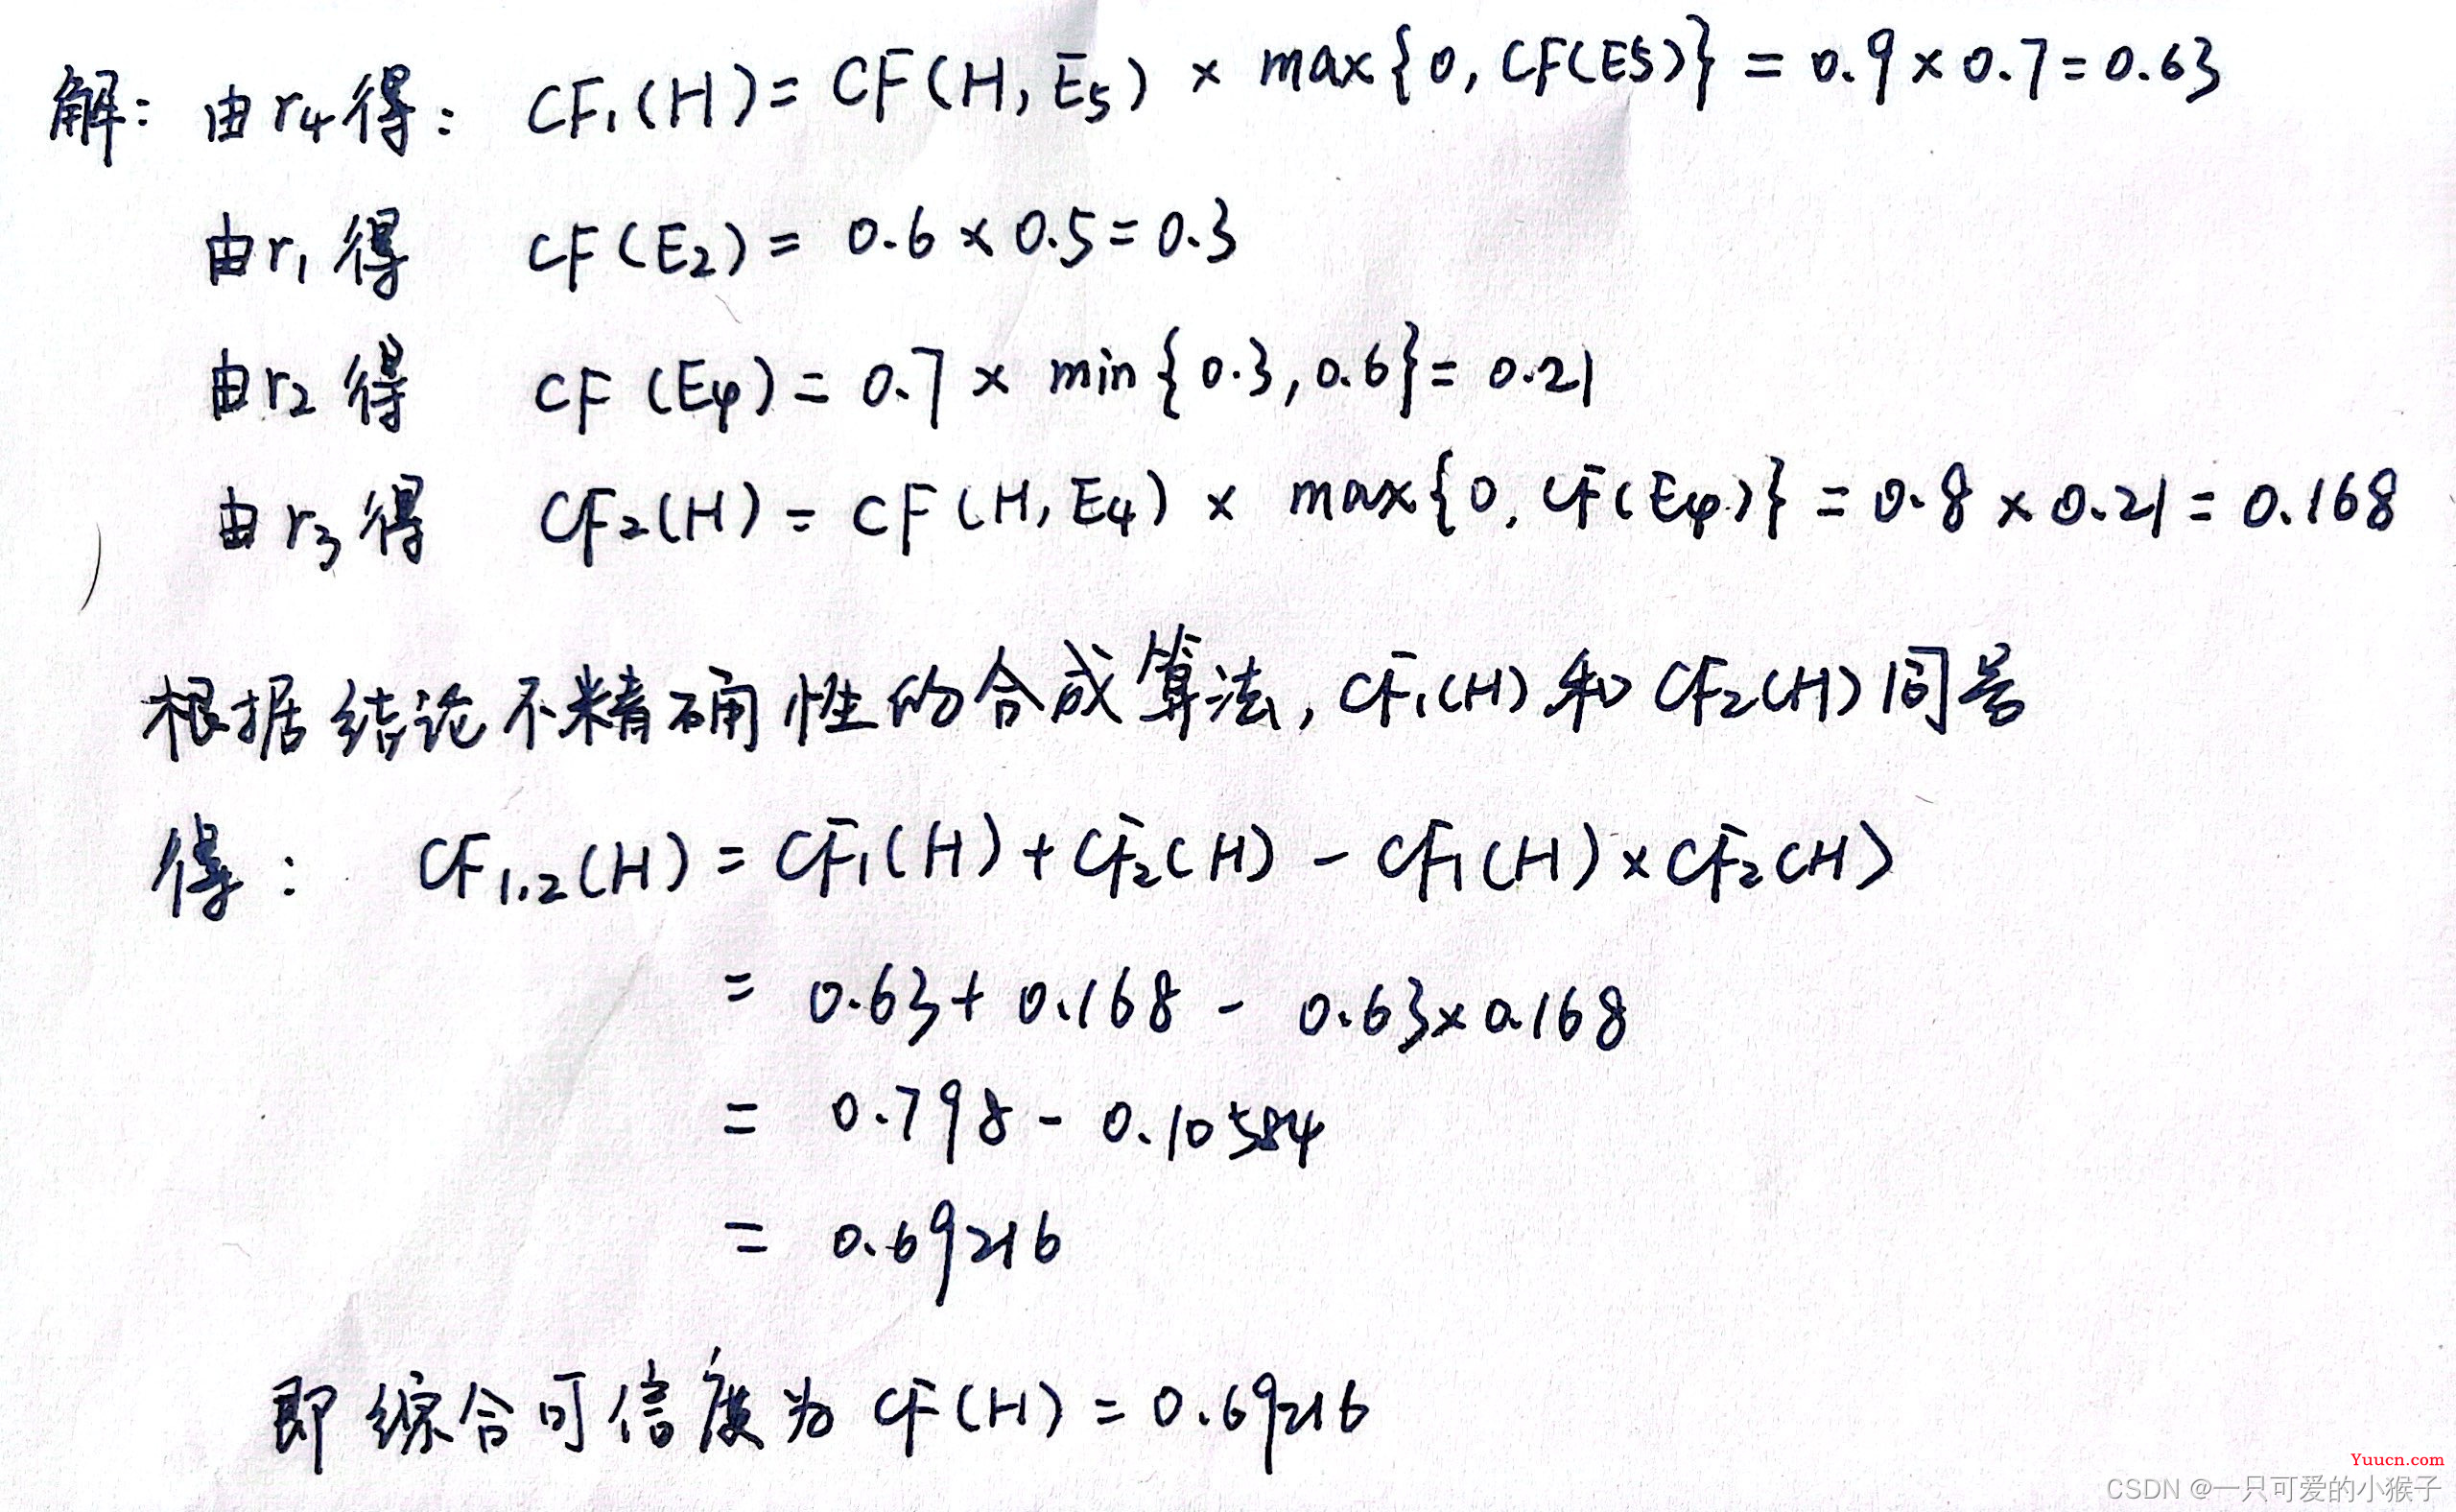 解: 由r₄得: CF₁(H)= CF(H, E₅) × max{0, CF(E5)} = 0.9×0.7=0.63
由r₁得 CF(E₂)= 0.6×0.5=0.3
由r₂得 CF(E₄)= 0.7× min{0.3, 0.6}= 0.21
由r₃得 CF₂(H)= CF(H, E₄) × max{0, CF(E₄)} = 0.8×0.21=0.168
根据结论不精确性的合成算法, CF₁(H)和CF₂(H)同号
得: CF₁.₂(H)= CF₁(H)+CF₂(H) - CF₁(H)×CF₂(H)
= 0.63+0.168 - 0.63×0.168
= 0.798-0.10584
= 0.69216
即综合可信度为CF(H)=0.69216
Yuucn.com
CSDN @一只可爱的小猴子